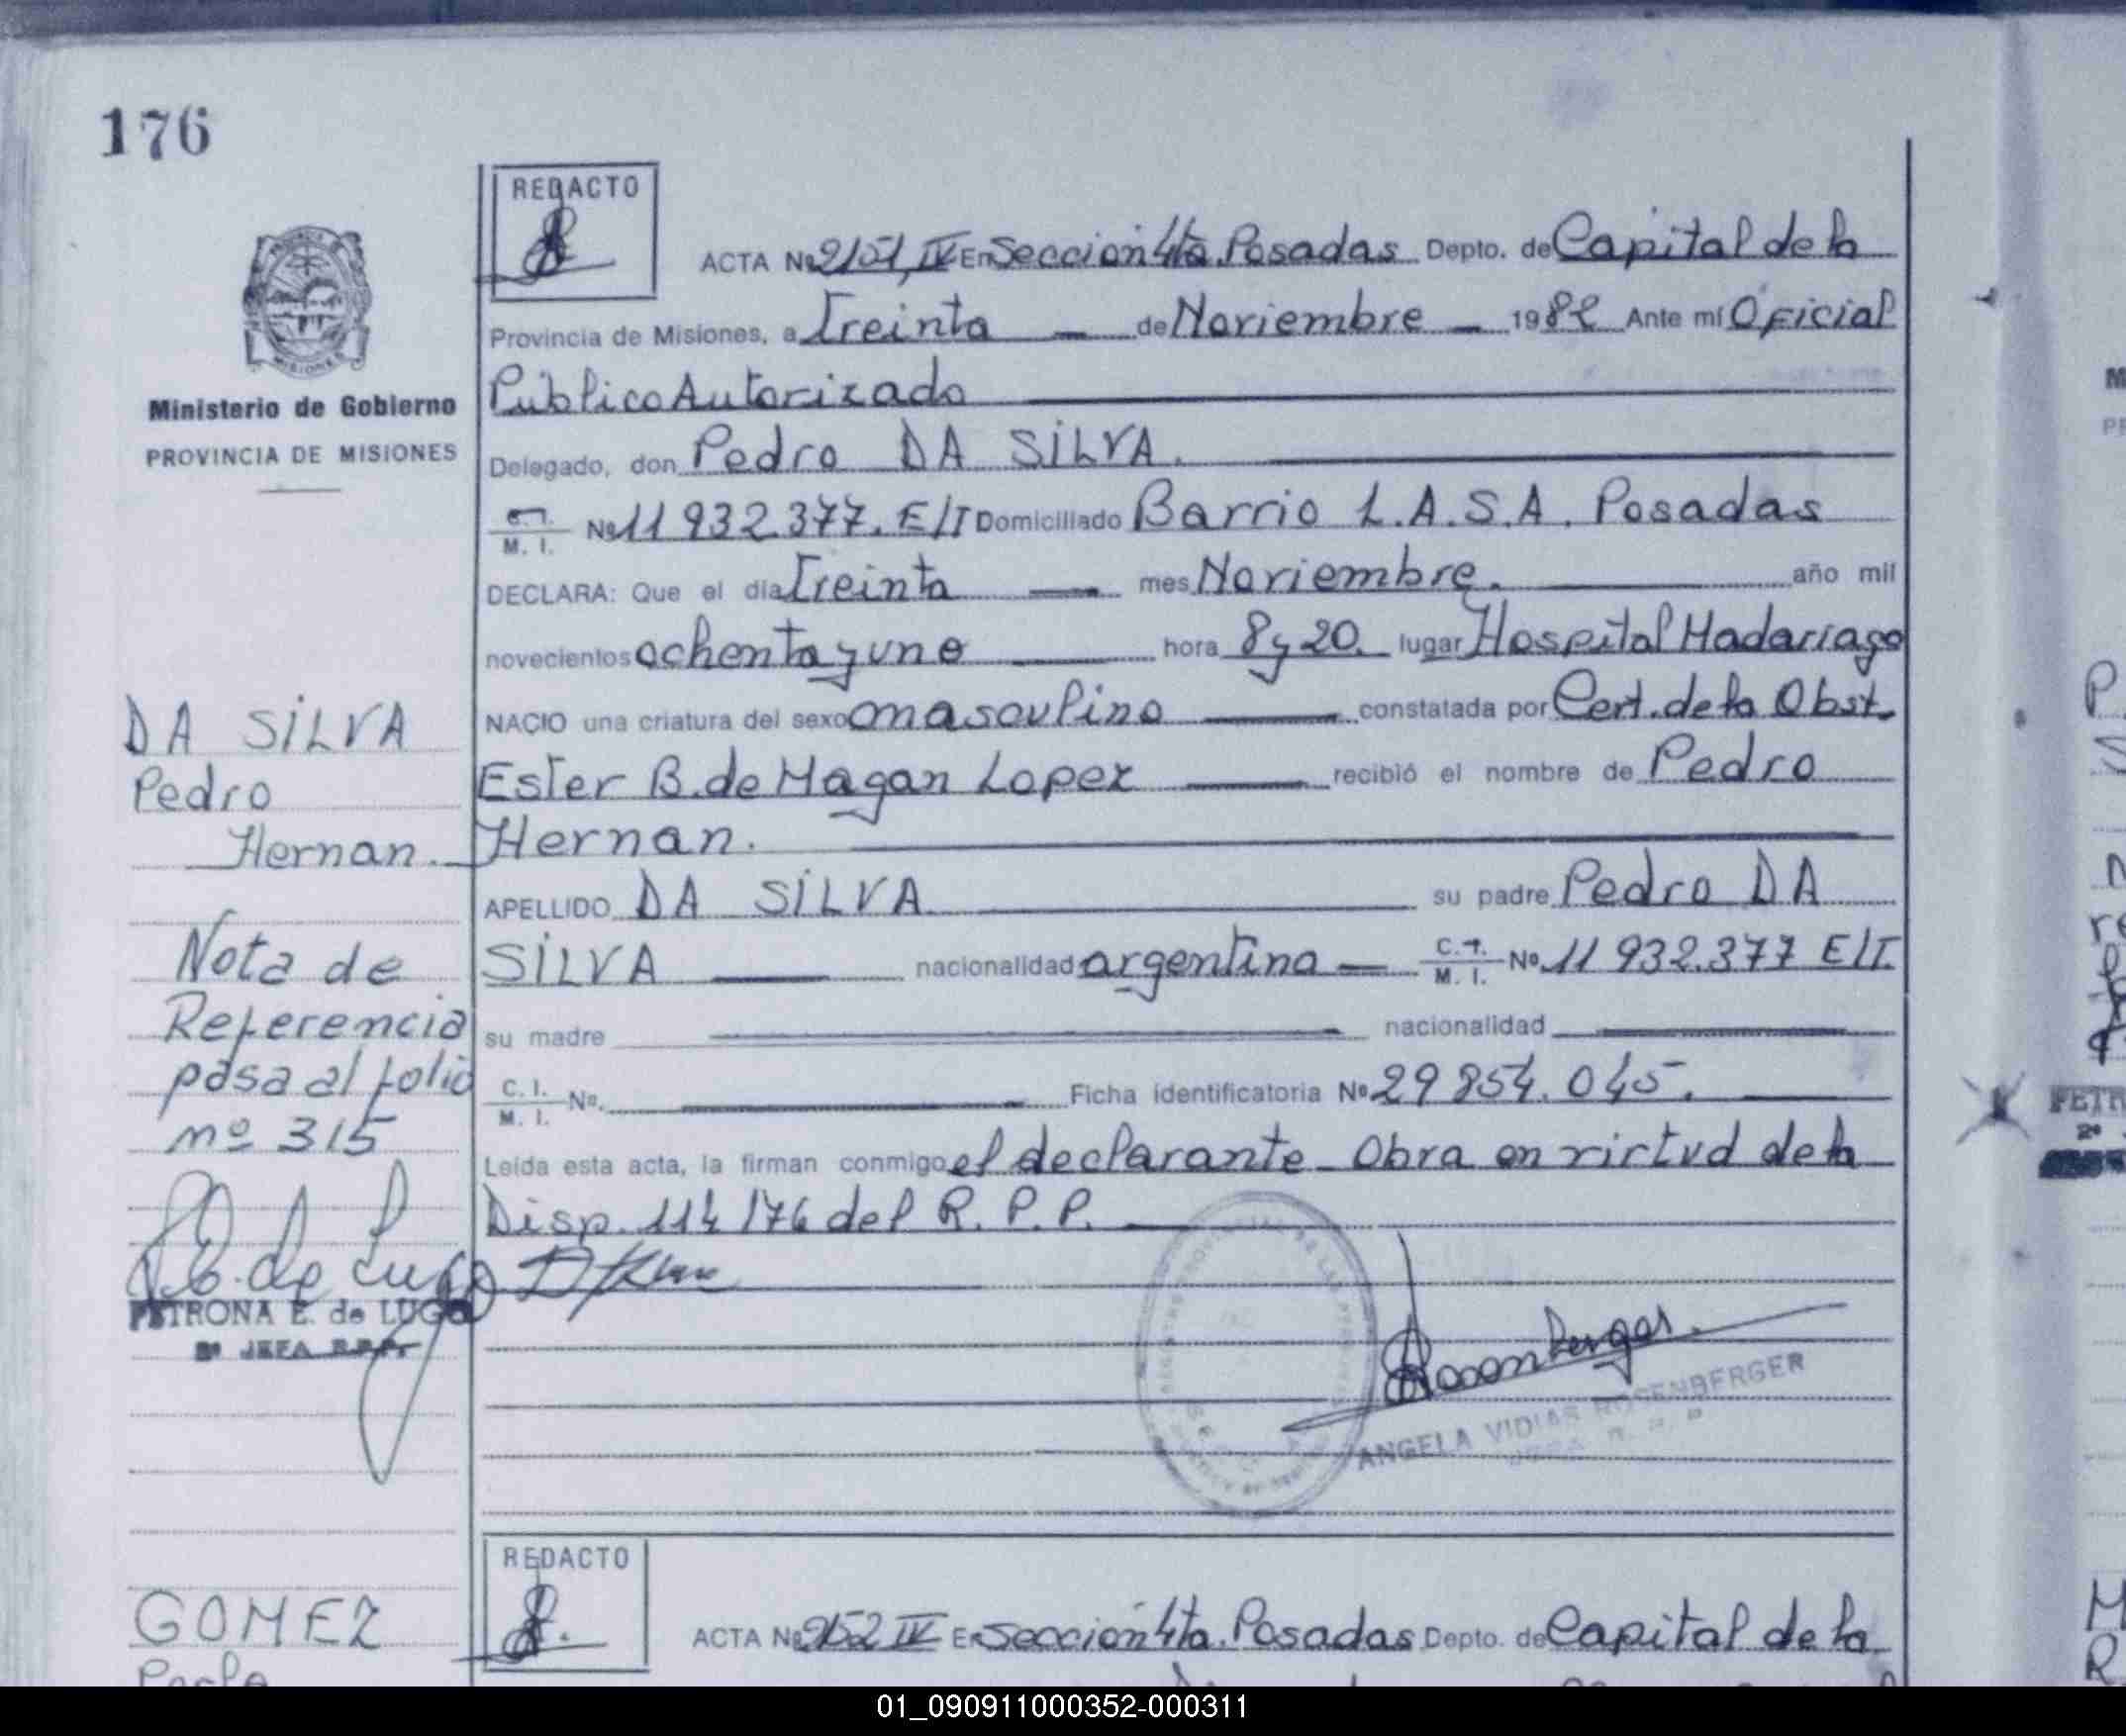 176
REDACTO
ACTA Nº 2151, IV En Seccion 4ta. Posadas Depto. de Capital de la
Provincia de Misiones, a Treinta — de Noviembre — 1982 Ante mí Oficial
Ministerio de Gobierno
PROVINCIA DE MISIONES
Publico Autorizado
Delegado, don Pedro DA SILVA.
M. I. Nº 11 932.377. E/T Domiciliado Barrio L.A.S.A. Posadas
DECLARA: Que el día Treinta — mes Noviembre. año mil
novecientos ochenta y uno hora 8 y 20. lugar Hospital Madariaga
NACIO una criatura del sexo masculino constatada por Cert. de la Obst.
Ester B. de Magan Lopez recibió el nombre de Pedro
Hernan.
DA SILVA
Pedro
Hernan.
APELLIDO DA SILVA su padre Pedro DA
SILVA nacionalidad argentina — C.I. M. I. Nº 11 932.377 E/T.
su madre nacionalidad
C. I. M. I. Nº. Ficha identificatoria Nº 29 854. 045.
Leída esta acta, la firman conmigo el declarante - Obra en virtud de la
Disp. 114/76 del R. P. P.
Nota de
Referencia
pasa al folio
nº 315
PETRONA E. de LUGO
2º JEFA R.P.P.
Rosenberger.
ANGELA VIDIAS ROSENBERGER
REDACTO
ACTA Nº 2152 IV En Seccion 4ta. Posadas Depto. de Capital de la
GOMEZ
01_090911000352-000311